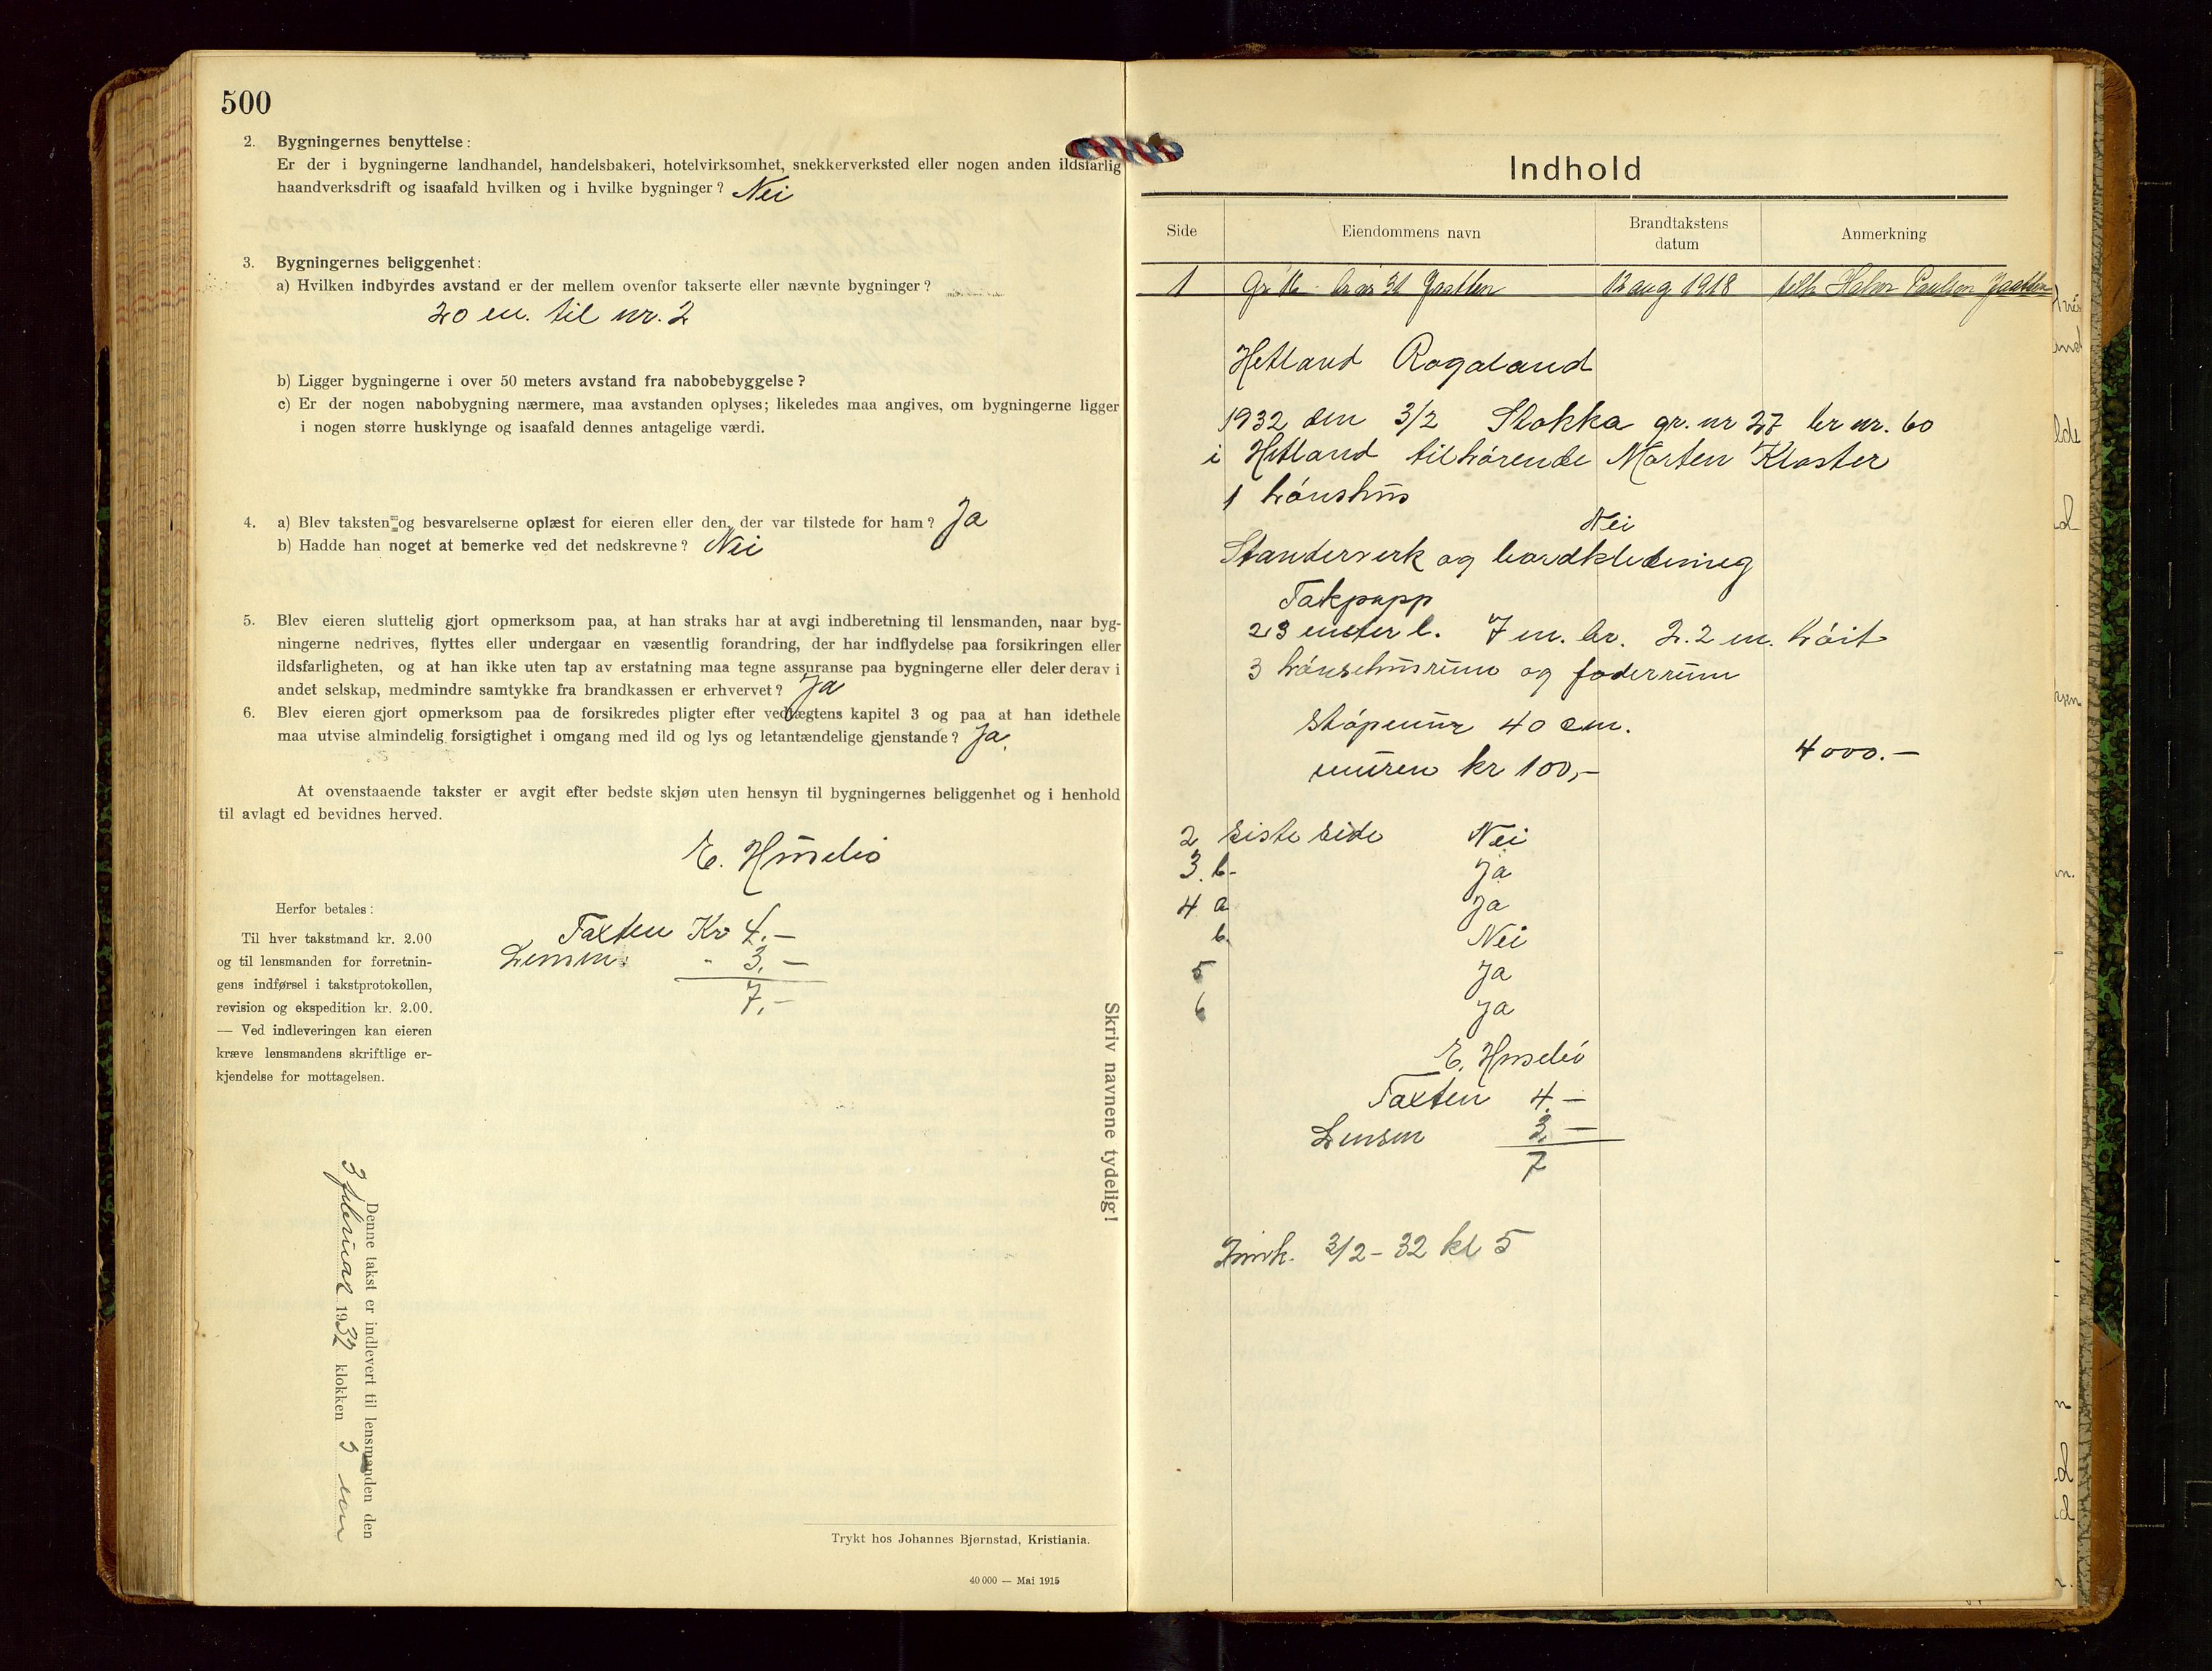 500
2. Bygningernes benyttelse:
Er der i bygningerne landhandel, handelsbakeri, hotelvirksomhet, snekkerverksted eller nogen anden ildsfarlig
haandverksdrift og isaafald hvilken og i hvilke bygninger? Nei
3. Bygningernes beliggenhet:
a) Hvilken indbyrdes avstand er der mellem ovenfor takserte eller nævnte bygninger?
20 m. til nr. 2
b) Ligger bygningerne i over 50 meters avstand fra nabobebyggelse?
c) Er der nogen nabobygning nærmere, maa avstanden oplyses; likeledes maa angives, om bygningerne ligger
i nogen større husklynge og isaafald dennes antagelige værdi.
4. a) Blev taksten og besvarelserne oplæst for eieren eller den, der var tilstede for ham? Ja
b) Hadde han noget at bemerke ved det nedskrevne? Nei
5. Blev eieren sluttelig gjort opmerksom paa, at han straks har at avgi indberetning til lensmanden, naar byg-
ningerne nedrives, flyttes eller undergaar en væsentlig forandring, der har indflydelse paa forsikringen eller
ildsfarligheten, og at han ikke uten tap av erstatning maa tegne assuranse paa bygningerne eller deler derav i
andet selskap, medmindre samtykke fra brandkassen er erhvervet? Ja
6. Blev eieren gjort opmerksom paa de forsikredes pligter efter vedtægtens kapitel 3 og paa at han idethele
maa utvise almindelig forsigtighet i omgang med ild og lys og letantændelige gjenstande? Ja.
At ovenstaaende takster er avgit efter bedste skjøn uten hensyn til bygningernes beliggenhet og i henhold
til avlagt ed bevidnes herved.
E. Husebø
Herfor betales:
Til hver takstmand kr. 2.00
og til lensmanden for forretnin-
gens indførsel i takstprotokollen,
revision og ekspedition kr. 2.00.
— Ved indleveringen kan eieren
kræve lensmandens skriftlige er-
kjendelse for mottagelsen.
Taxten Kr 4.—
Lensm. " 3.—
7.—
Skriv navnene tydelig!
Denne takst er indlevert til lensmanden den
3 februar 1932 klokken 3 em
Trykt hos Johannes Bjørnstad, Kristiania.
40 000 — Mai 1915
Indhold
Side Eiendommens navn Brandtakstens datum Anmerkning
1 Gr 16 br nr 31 Jaatten 12 aug 1918 tilh Halvor Paulsen Jaatten
Hetland Rogaland
1932 den 3/2 Stokka gr. nr 27 br nr. 60
i Hetland tilhørende Morten Kloster
1 hønshus
Nei
Standerverk og bordkledning
Takpapp
23 meter l. 7 m. br. 2.2 m. høit
3 hønsehusrum og foderrum
støpemur 40 cm.
4000.—
muren kr 100,—
2 siste side Nei
3. b. Ja
4 a Ja
b. Nei
5 Ja
6 Ja
E. Husebø
Taxten 4.—
Lensm 3.—
7
3/2-32 kl 5